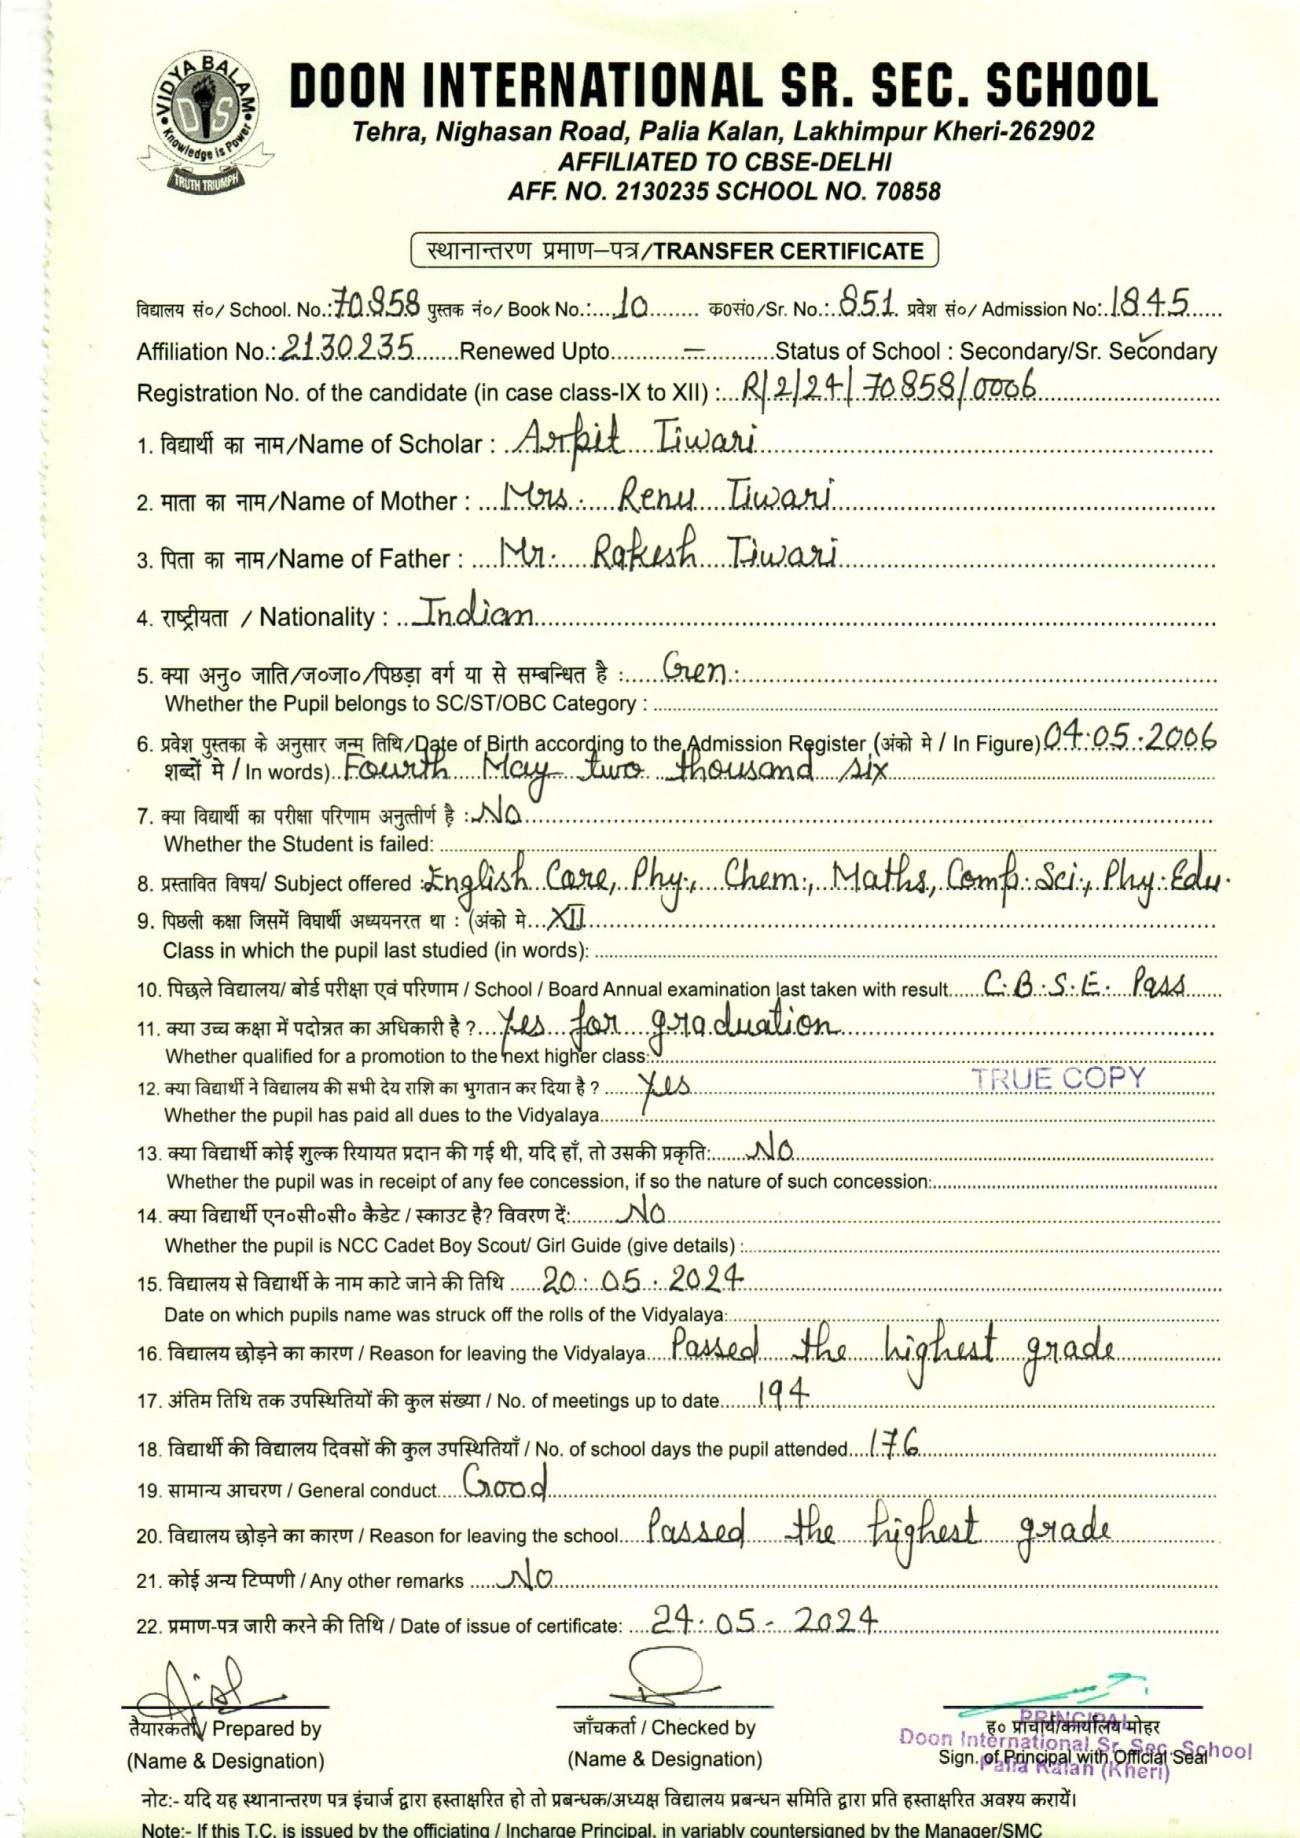 VIDYA BALAM
DIS
Knowledge is Power
TRUTH TRIUMPH
DOON INTERNATIONAL SR. SEC. SCHOOL
Tehra, Nighasan Road, Palia Kalan, Lakhimpur Kheri-262902
AFFILIATED TO CBSE-DELHI
AFF. NO. 2130235 SCHOOL NO. 70858
स्थानान्तरण प्रमाण–पत्र/TRANSFER CERTIFICATE
विद्यालय सं०/ School. No.: 70858 पुस्तक नं०/ Book No.: 10 क०सं०/Sr. No.: 851 प्रवेश सं०/ Admission No: 1845
Affiliation No.: 2130235 Renewed Upto — Status of School : Secondary/Sr. Secondary ✓
Registration No. of the candidate (in case class-IX to XII) : R/2/24/70858/0006
1. विद्यार्थी का नाम/Name of Scholar : Arpit Tiwari
2. माता का नाम/Name of Mother : Mrs. Renu Tiwari
3. पिता का नाम/Name of Father : Mr. Rakesh Tiwari
4. राष्ट्रीयता / Nationality : Indian
5. क्या अनु० जाति/ज०जा०/पिछड़ा वर्ग या से सम्बन्धित है : Gen.
Whether the Pupil belongs to SC/ST/OBC Category :
6. प्रवेश पुस्तका के अनुसार जन्म तिथि/Date of Birth according to the Admission Register (अंको मे / In Figure) 04.05.2006
शब्दों मे / In words) Fourth May two thousand six
7. क्या विद्यार्थी का परीक्षा परिणाम अनुत्तीर्ण है : No
Whether the Student is failed:
8. प्रस्तावित विषय/ Subject offered : English Core, Phy., Chem., Maths, Comp. Sci., Phy. Edu.
9. पिछली कक्षा जिसमें विद्यार्थी अध्ययनरत था : (अंको मे XII
Class in which the pupil last studied (in words):
10. पिछले विद्यालय/ बोर्ड परीक्षा एवं परिणाम / School / Board Annual examination last taken with result C.B.S.E. Pass
11. क्या उच्च कक्षा में पदोन्नत का अधिकारी है ? Yes for graduation
Whether qualified for a promotion to the next higher class:
TRUE COPY
12. क्या विद्यार्थी ने विद्यालय की सभी देय राशि का भुगतान कर दिया है ? Yes
Whether the pupil has paid all dues to the Vidyalaya
13. क्या विद्यार्थी कोई शुल्क रियायत प्रदान की गई थी, यदि हाँ, तो उसकी प्रकृति: No
Whether the pupil was in receipt of any fee concession, if so the nature of such concession:
14. क्या विद्यार्थी एन०सी०सी० कैडेट / स्काउट है? विवरण दें: No
Whether the pupil is NCC Cadet Boy Scout/ Girl Guide (give details) :
15. विद्यालय से विद्यार्थी के नाम काटे जाने की तिथि 20.05.2024
Date on which pupils name was struck off the rolls of the Vidyalaya:
16. विद्यालय छोड़ने का कारण / Reason for leaving the Vidyalaya Passed the highest grade
17. अंतिम तिथि तक उपस्थितियों की कुल संख्या / No. of meetings up to date 194
18. विद्यार्थी की विद्यालय दिवसों की कुल उपस्थितियाँ / No. of school days the pupil attended 176
19. सामान्य आचरण / General conduct Good
20. विद्यालय छोड़ने का कारण / Reason for leaving the school Passed the highest grade
21. कोई अन्य टिप्पणी / Any other remarks No
22. प्रमाण-पत्र जारी करने की तिथि / Date of issue of certificate: 24.05.2024
तैयारकर्ता / Prepared by
(Name & Designation)
जाँचकर्ता / Checked by
(Name & Designation)
ह० प्राचार्य/कार्यालय मोहर
Sign. of Principal with Official Seal
PRINCIPAL
Doon International Sr. Sec. School
Palia Kalan (Kheri)
नोट:- यदि यह स्थानान्तरण पत्र इंचार्ज द्वारा हस्ताक्षरित हो तो प्रबन्धक/अध्यक्ष विद्यालय प्रबन्धन समिति द्वारा प्रति हस्ताक्षरित अवश्य करायें।
Note:- If this T.C. is issued by the officiating / Incharge Principal, in variably countersigned by the Manager/SMC